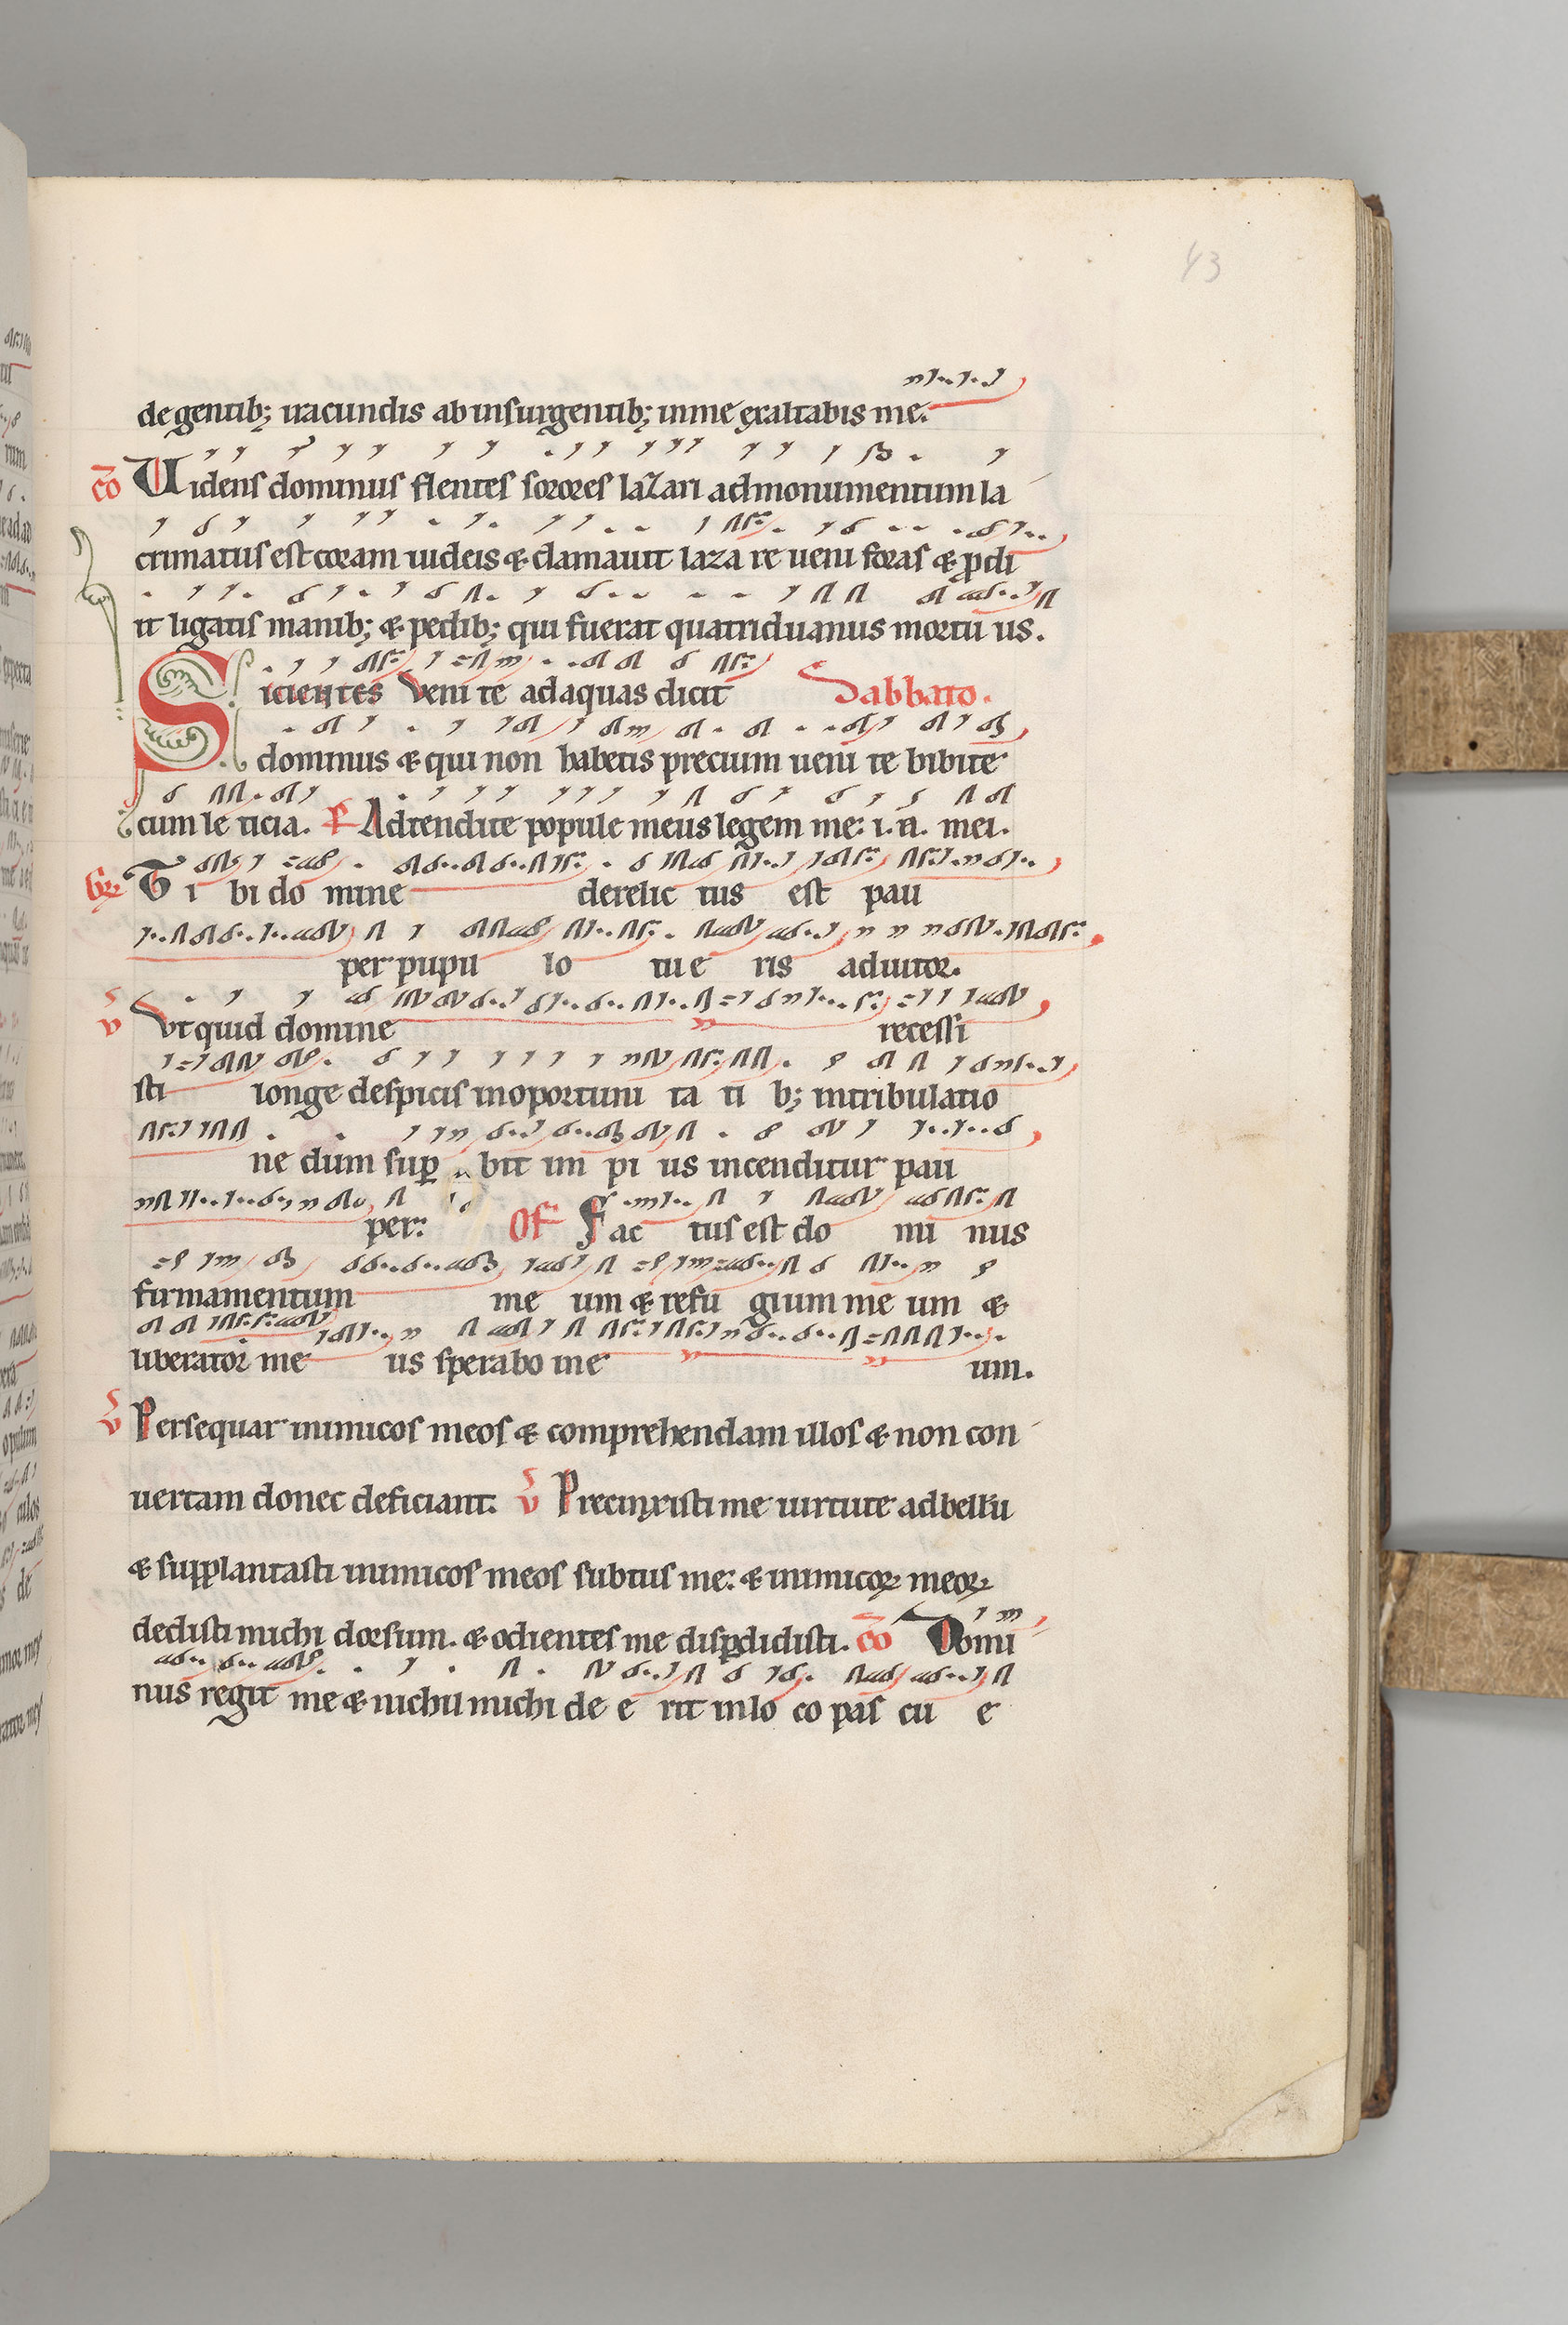 43
de gentib; iracundis ab insurgentib; in me exaltabis me.
co Uidens dominus flentes sorores lazari ad monumentum la
crimatus est coram iudeis & clamauit laza re ueni foras & pdi
it ligatis manib; & pedib; qui fuerat quatriduanus mortu us.
Sicientes Veni te ad aquas dicit Sabbato.
dominus & qui non habetis precium ueni te bibite
cum le ticia. P Adtendite popule meus legem me: i. a. mei.
Gr Ti bi do mine derelic tus est pau
per pupil lo tu e ris adiutor.
v Vt quid domine recessi
sti longe despicis in oportuni ta ti b; in tribulatio
ne dum sup bit im pi us incenditur pau
per: Of Fac tus est do mi nus
firmamentum me um & refu gium me um &
liberator me us sperabo in e um.
v Persequar inimicos meos & comprehendam illos & non con
uertam donec deficiant. v Precinxisti me uirtute ad bellu
& supplantasti inimicos meos subtus me: & inimicoꝝ meoꝝ
dedisti michi dorsum. & odientes me dispdidisti. co Domi
nus regit me & nichil michi de e rit in lo co pas cu e